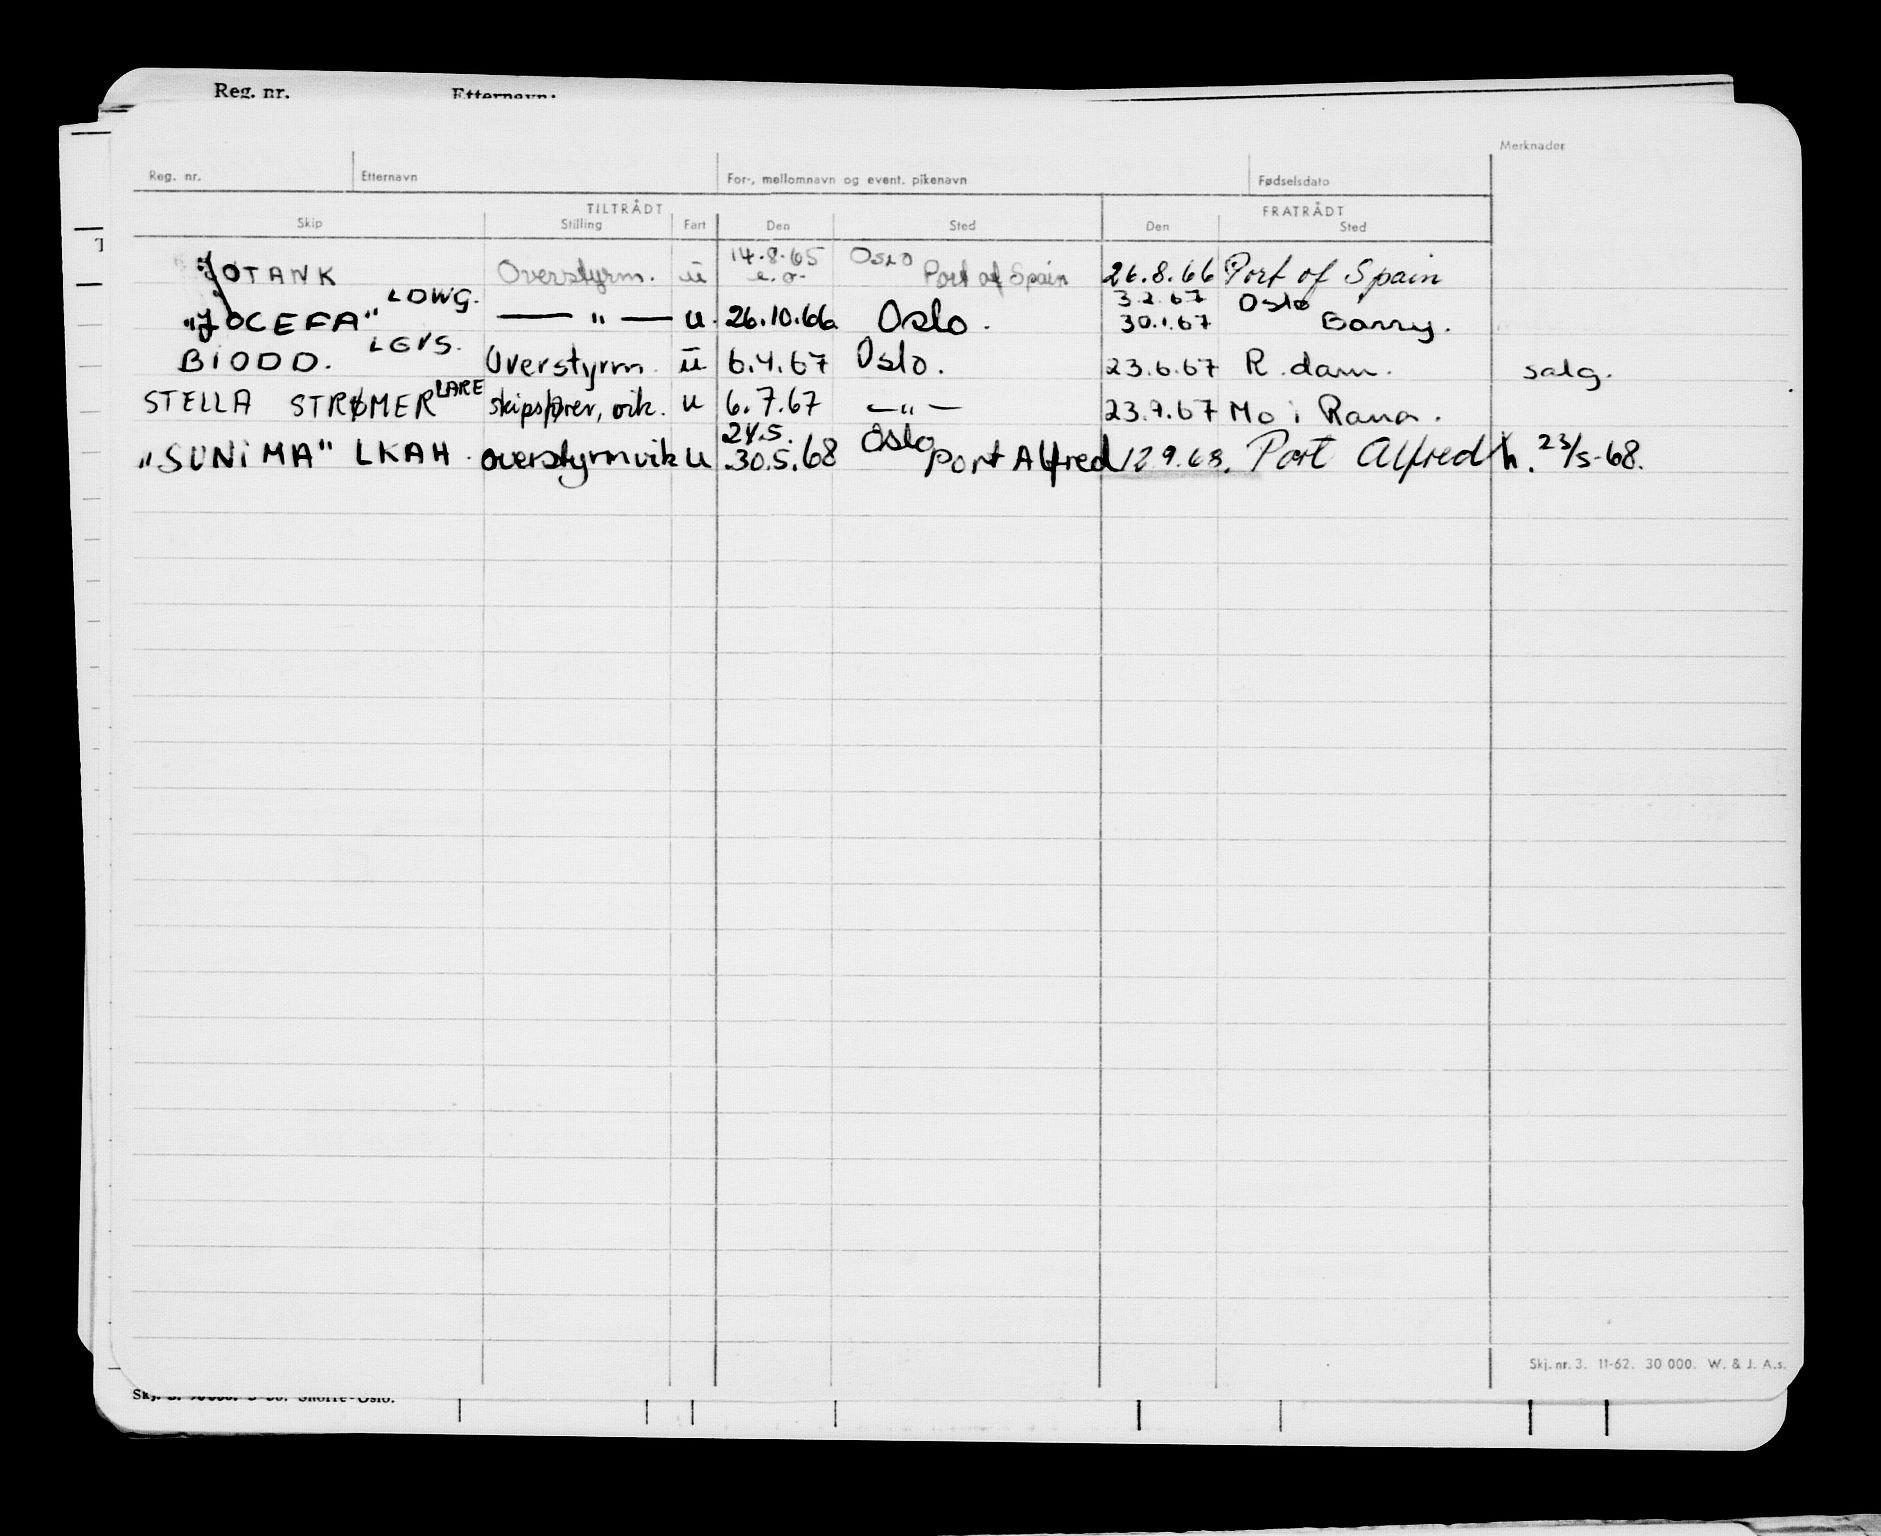 Reg. nr. Etternavn:
Merknader
Reg. nr. Etternavn For-, mellomnavn og event. pikenavn Fødselsdato
TILTRÅDT FRATRÅDT
Skip Stilling Fart Den Sted Den Sted
14.8.65 Oslo
JOTANK Overstyrm. u Port of Spain 26.8.66 Port of Spain
LDWG. 3.2.67 Oslo
"JOCEFA" — " — u. 26.10.66 Oslo. 30.1.67 Barry.
LGVS.
BIODD. Overstyrm. u 6.4.67 Oslo. 23.6.67 R.dam. salg.
STELLA STRØMER LARE skipsfører, vik. u 6.7.67 — " — 23.9.67 Mo i Rana.
24.5. Oslo
"SUNIMA" LKAH. overstyrm vik u 30.5.68 Port Alfred 12.9.68. Port Alfred h. 23/5-68.
Skj. nr. 3. 11-62. 30 000. W. & J. A.s.